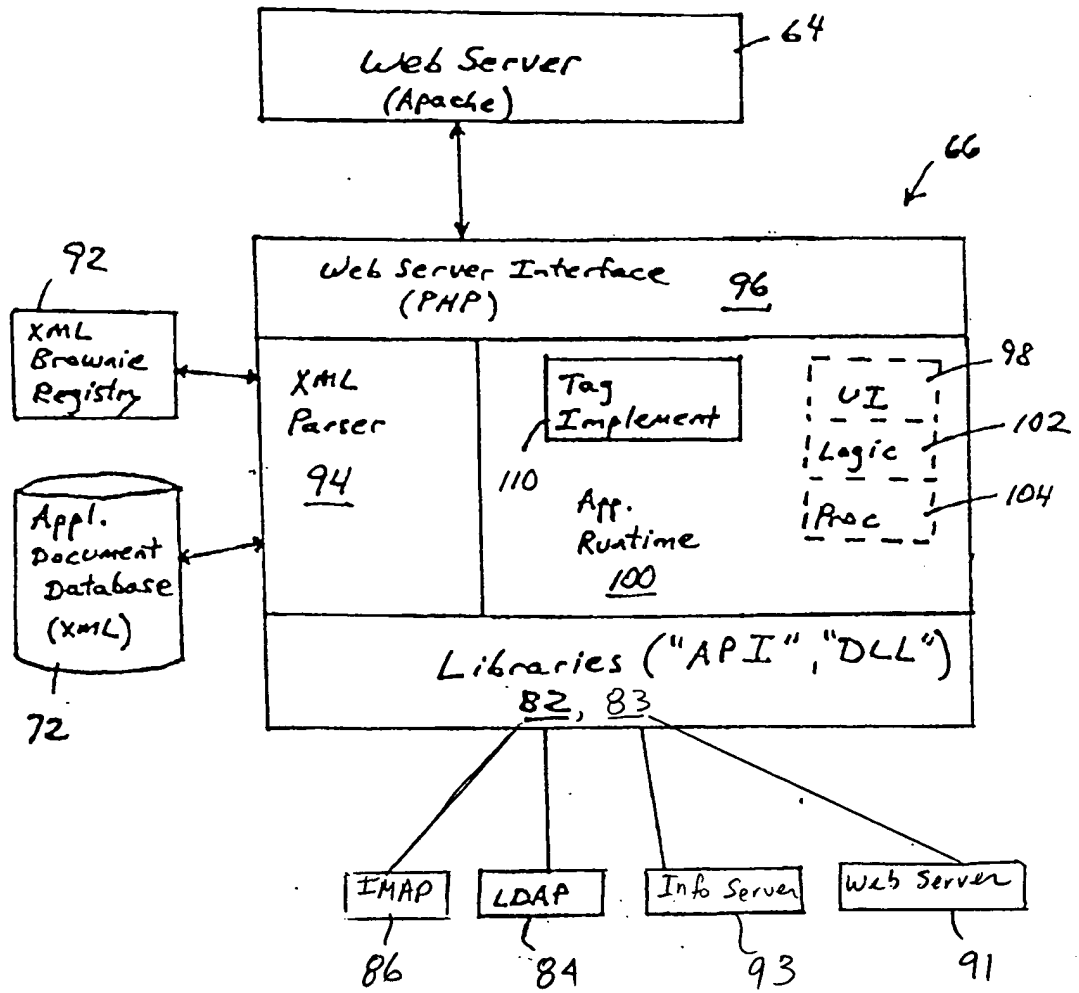 Web Server
(Apache)
64
66
92
Web Server Interface
(PHP)
96
XML
Brownie
Registry
XML
Parser
94
Tag
Implement
110
App.
Runtime
100
UI
98
Logic
102
Proc
104
Appl.
Document
Database
(XML)
72
Libraries ("API","DLL")
82, 83
IMAP
LDAP
Info Server
Web Server
86
84
93
91